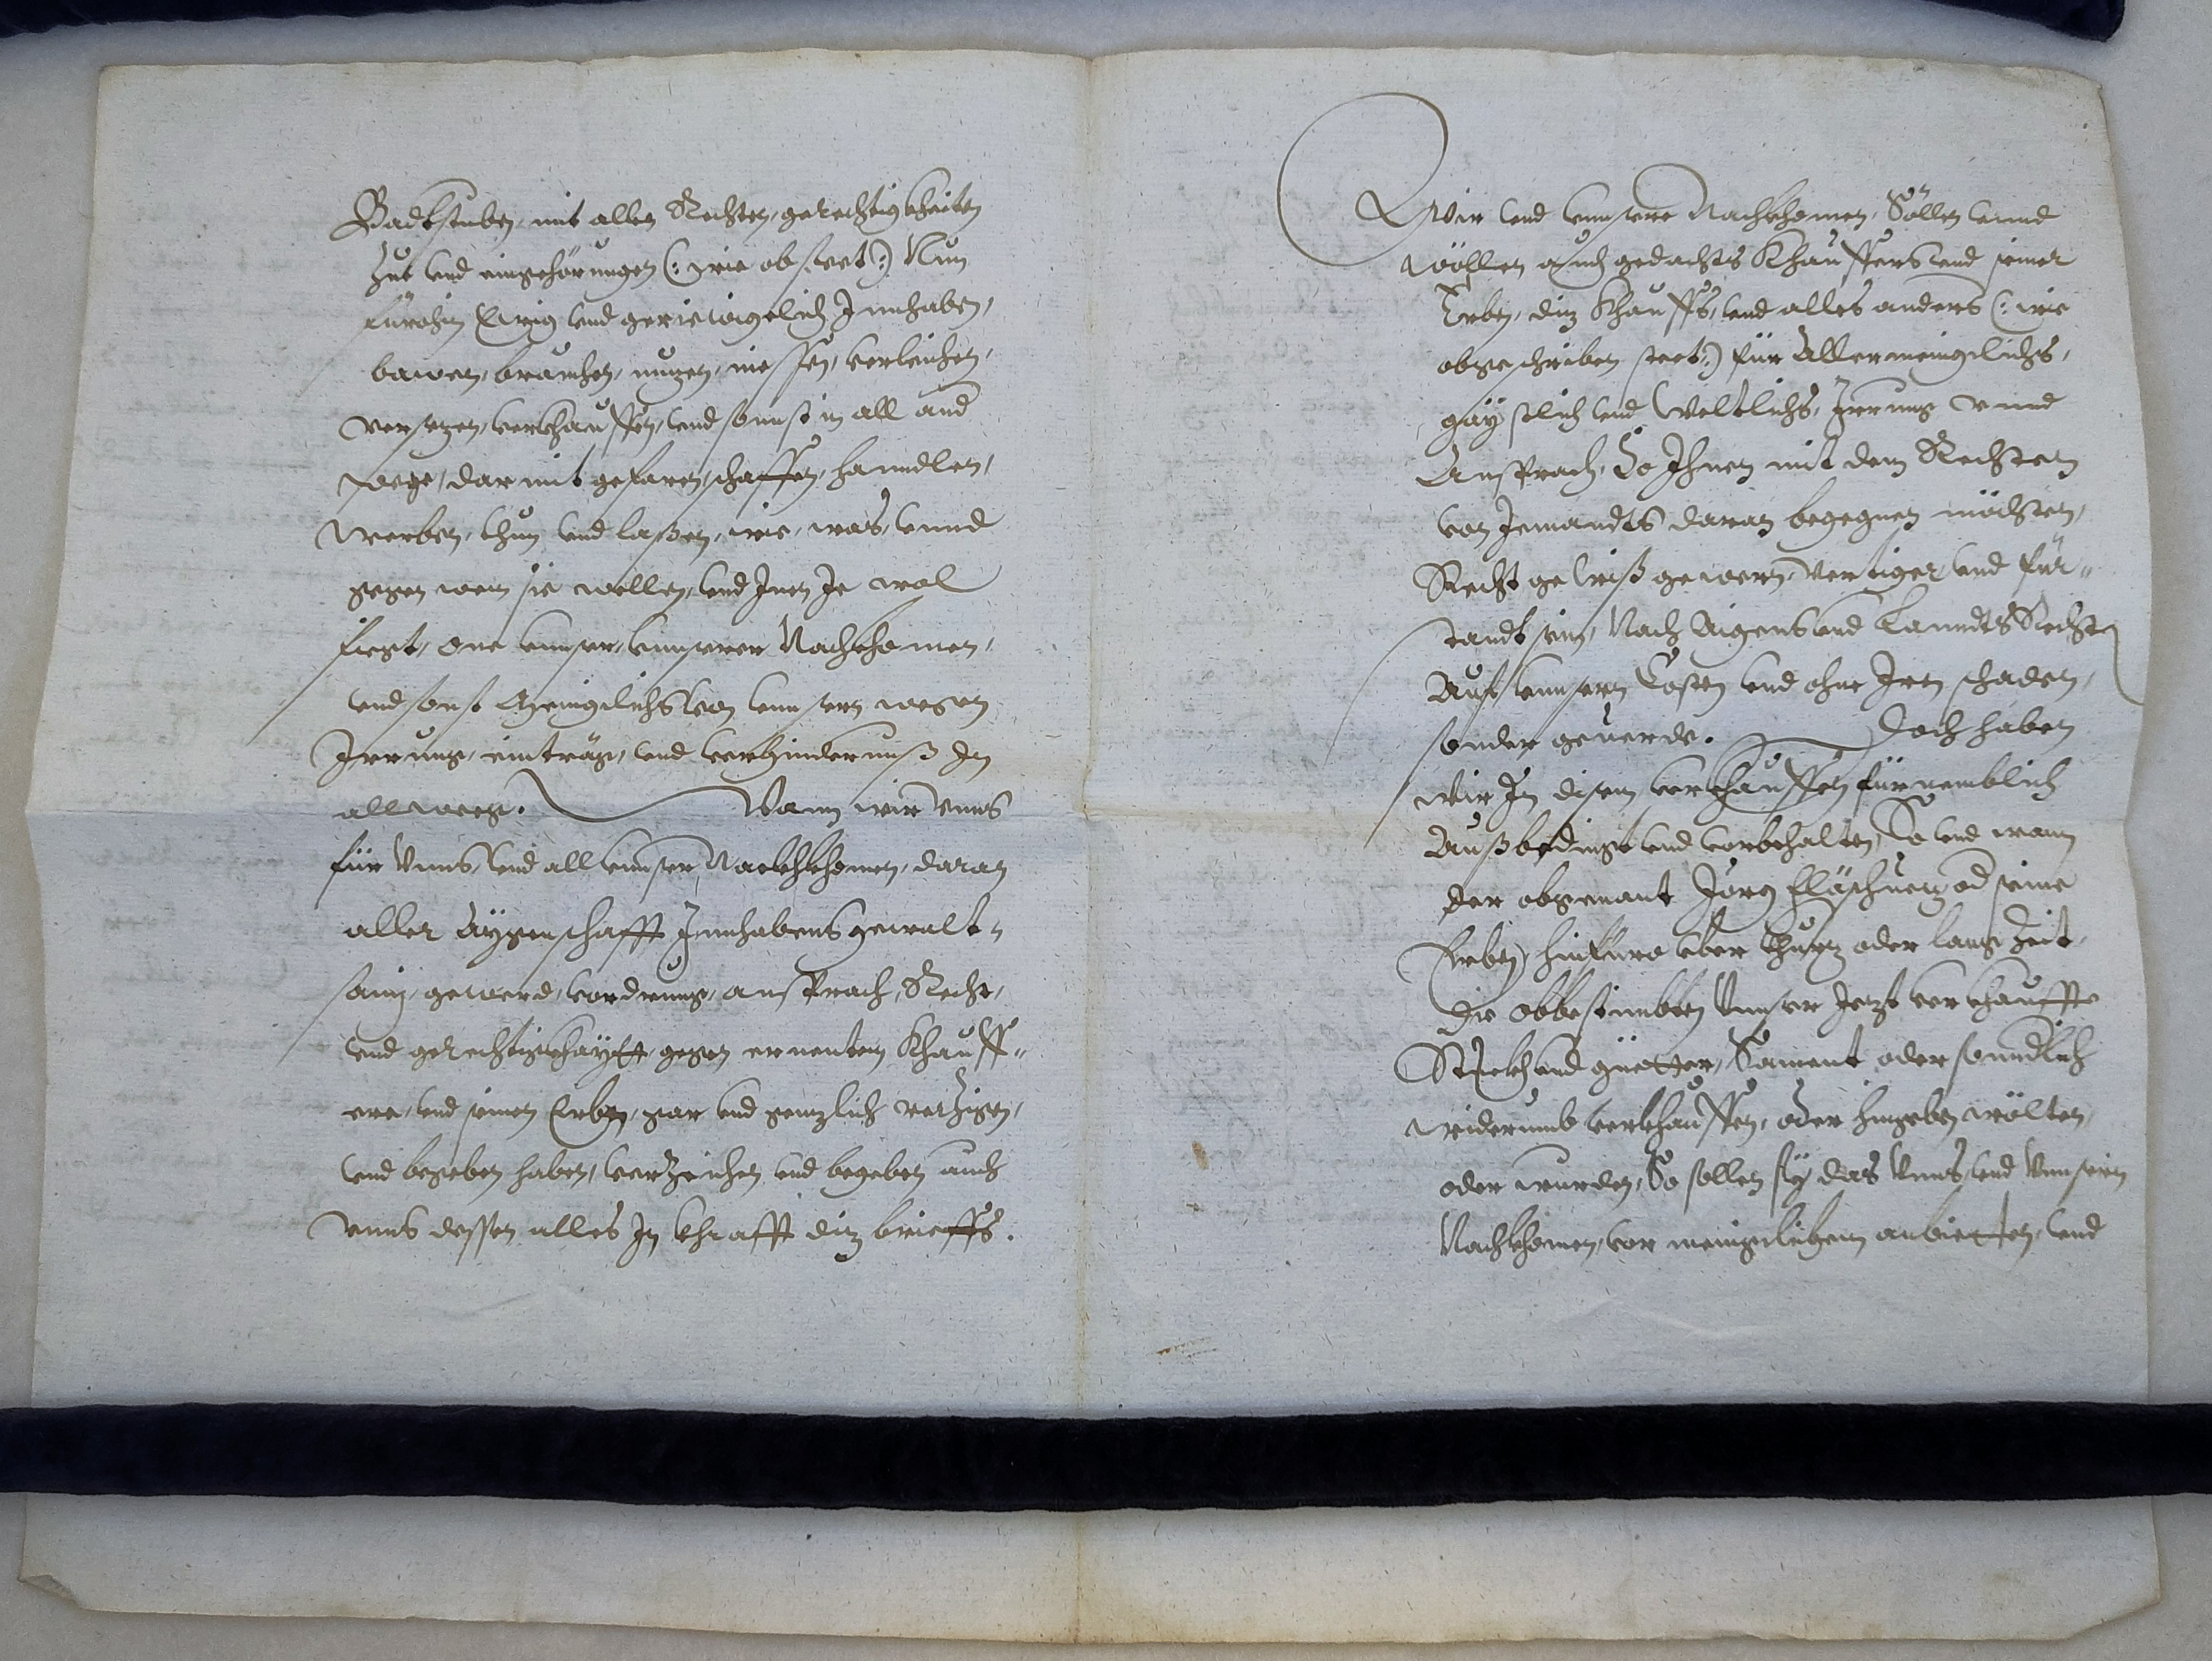 Badtstuben, mit allen Rechten, gerechtigkheiten
Zue und eingehörungen (: wie obsteet :) Nun
fürohin Ewig und geruewigelich Innhaben,
bawen, brauchen, nuzen, niessen, verleichen,
versezen, verkhauffen, und sonnst in all annd
wege, darmit gefaren, schaffen, hanndlen,
werben, thun und laßen, wie, was, unnd
gegen wem sie wellen, und Inen Je wol
fiegt, One unnser, unnserer Nachkhomen,
und sonst Meingclichs von unnsern wegen
Irrung, eintrag, und verhindernuß In
allweeg. Wann wir unns
für Unns, und all unnser Nachkhomen, daran
aller Aygenschafft Innhabens gewalt-
sam, gewerd, vordrung, ansprach, Recht,
und gerechtigkhaytt, gegen ernentem Khauff-
ern, und seinen Erben, gar und genzlich verzigen,
und begeben haben, verzeichen und begeben auch
unns dessen alles In khrafft diz brieffs.
Wir und unnsere Nachkhomen, Söllen unnd
wöllen auch gedachts Khauffers und seiner
Erben, diz Khauffs, und alles anders (: wie
obgeschriben steet :) für Allermeingclichs,
gaystlich und Weltlichs, Irrung unnd
Ansprach, So Ihnen mit dem Rechten
von Jemandts daran begegnen möchten,
Recht gewiß gewern, Vertiger und für-
standt sein, Nach Aigens und Lanndts Recht
Auf unnsern Costen und ohne Irn schaden,
sonder geuerde. Doch haben
wir In disem verkhauffen fürnemblich
Außbedingt und vorbehalten, So und wann
der obgenant Jörg od seine
Erben, hinfuro uber khurz oder lang Zeit,
die obbestimbten Unnser Jezt verkhauffte
Stuckh und güetter, Sament oder sonndlich
widerumb verkhauffen, oder hingeben wölten,
oder wurden, So sollen sy das Unns und Unnsern
Nachkhomen, vor meingclichem anbietten, und